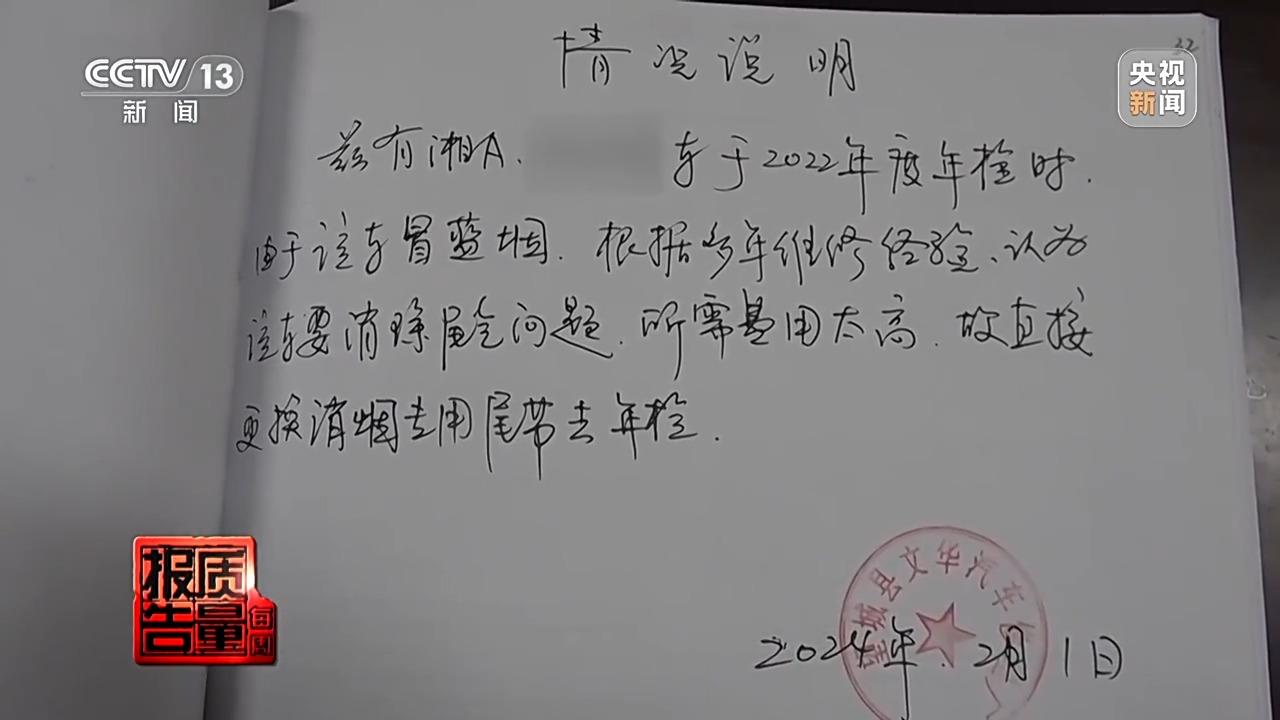 CCTV 13
新闻
央视
新闻
情况说明
兹有湘A. 车于2022年度年检时.
由于该车冒蓝烟.根据多年维修经验、认为
该车要消除尾气问题.所需费用太高.故直接
更换消烟专用尾带去年检.
县文华汽车
2024年.2月1日
每周
质量
报告